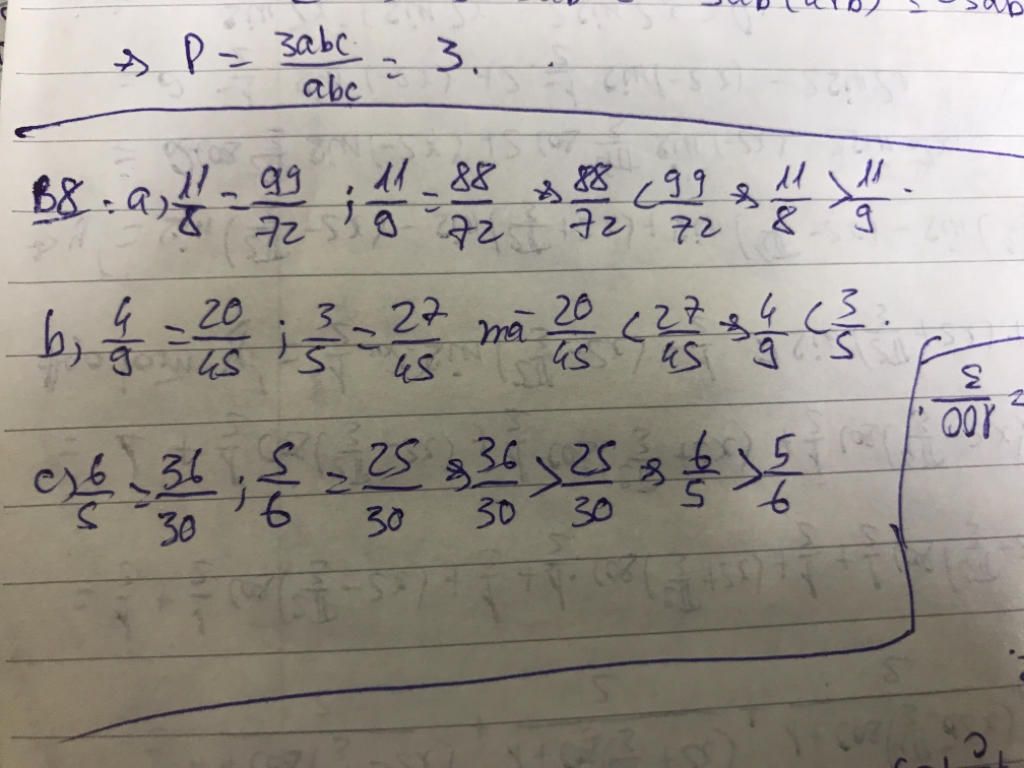 3ab(a+b)
⇒ P = 3abc/abc = 3.
B8: a, 11/8 = 99/72 ; 11/9 = 88/72 ⇒ 88/72 < 99/72 ⇒ 11/8 > 11/9.
b, 4/9 = 20/45 ; 3/5 = 27/45 mà 20/45 < 27/45 ⇒ 4/9 < 3/5.
c) 6/5 = 36/30 ; 5/6 = 25/30 ⇒ 36/30 > 25/30 ⇒ 6/5 > 5/6
= 3/100.